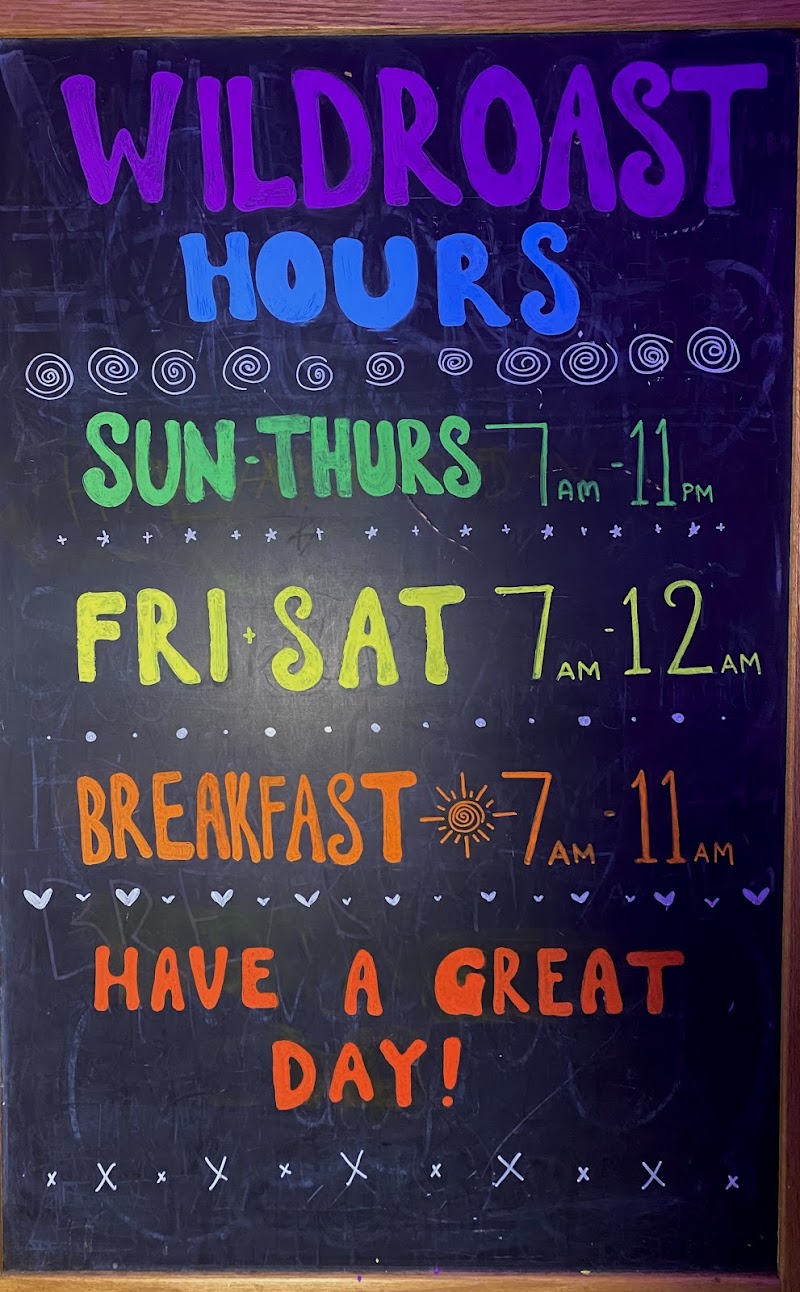 WILDROAST
HOURS
SUN-THURS 7AM-11PM
FRI+SAT 7AM-12AM
BREAKFAST 7AM-11AM
HAVE A GREAT
DAY!